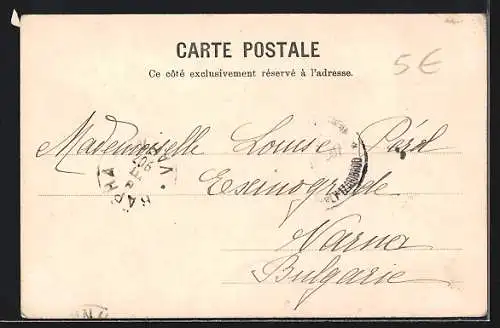 CARTE POSTALE
5€
Ce côté exclusivement réservé à l'adresse.
Mademoiselle Louise
Exeinograde
Varna
Bulgarie
ВАРНА